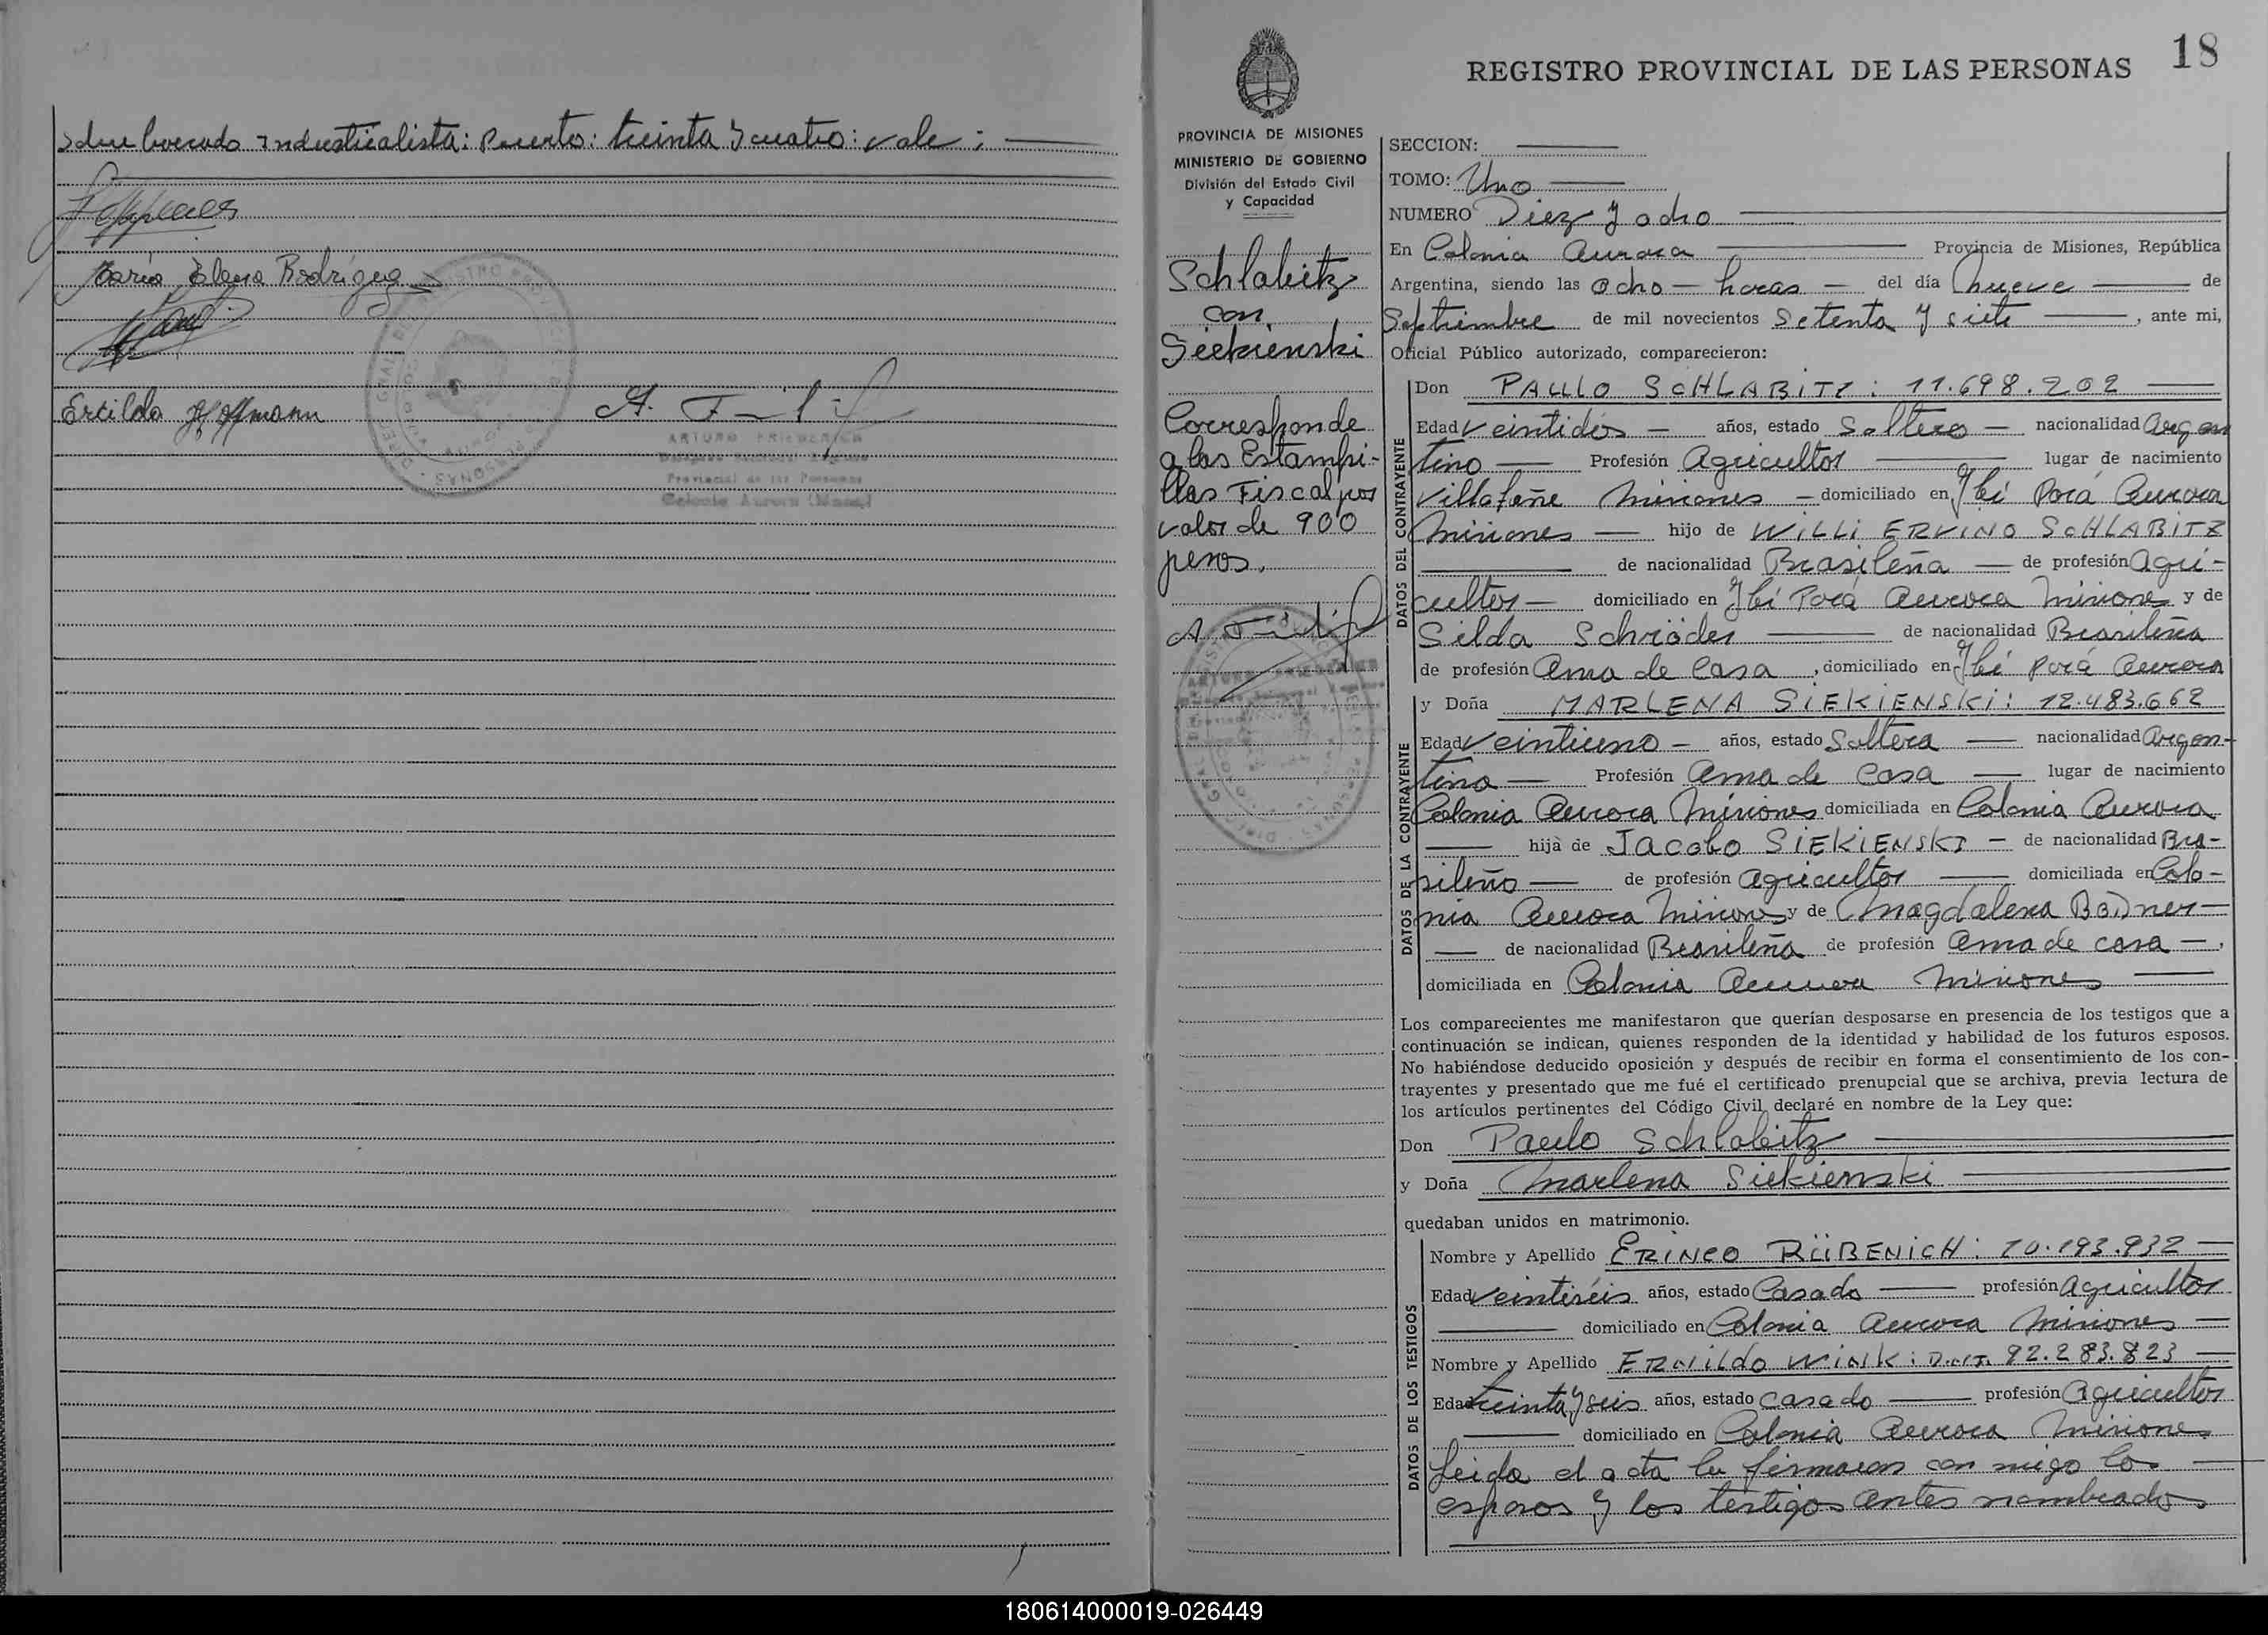 Sobre borrado Industrialista: Puerto: treinta y cuatro: vale:
María Elena Rodríguez
Ercilda Hoffmann
A. F
ARTURO FRIEDERICH
Provincial de las Personas
Colonia Aurora (Mnes)
18
REGISTRO PROVINCIAL DE LAS PERSONAS
PROVINCIA DE MISIONES
MINISTERIO DE GOBIERNO
División del Estado Civil
y Capacidad
Schlabitz
con
Siekienski
Corresponde
a las Estampi-
llas Fiscal por
valor de 900
pesos.
SECCION:
TOMO: Uno
NUMERO Diez y ocho
En Colonia Aurora Provincia de Misiones, República
Argentina, siendo las Ocho horas del día nueve de
Septiembre de mil novecientos Setenta y siete, ante mi,
Oficial Público autorizado, comparecieron:
DATOS DEL CONTRAYENTE
Don PAULO SCHLABITZ: 11.698.202
Edad Veintidós años, estado Soltero nacionalidad Argen
tino Profesión Agricultor lugar de nacimiento
Villafañe Misiones domiciliado en Ibí Porá Aurora
Misiones hijo de WiLLi ERVINO SCHLABITZ
de nacionalidad Brasileña de profesión Agri-
cultor domiciliado en Ibí Porá Aurora Misiones y de
Silda Schröder de nacionalidad Brasileña
de profesión Ama de Casa, domiciliado en Ibí Porá Aurora
DATOS DE LA CONTRAYENTE
y Doña MARLENA SiEKiENSKi: 12.483.662
Edad Veintiuno años, estado Soltera nacionalidad Argen-
tina Profesión Ama de Casa lugar de nacimiento
Colonia Aurora Misiones domiciliada en Colonia Aurora
hija de Jacobo SiEKiENSKI de nacionalidad Bra-
sileño de profesión Agricultor domiciliada en Colo-
nia Aurora Misiones y de Magdalena Bödner
de nacionalidad Brasileña de profesión Ama de casa,
domiciliada en Colonia Aurora Misiones
Los comparecientes me manifestaron que querían desposarse en presencia de los testigos que a
continuación se indican, quienes responden de la identidad y habilidad de los futuros esposos.
No habiéndose deducido oposición y después de recibir en forma el consentimiento de los con-
trayentes y presentado que me fué el certificado prenupcial que se archiva, previa lectura de
los artículos pertinentes del Código Civil declaré en nombre de la Ley que:
Don Paulo Schlabitz
y Doña Marlena Siekienski
quedaban unidos en matrimonio.
DATOS DE LOS TESTIGOS
Nombre y Apellido ERINEO RÜBENICH: 10.193.932
Edad Veintiséis años, estado Casado profesión Agricultor
domiciliado en Colonia Aurora Misiones
Nombre y Apellido ERNildo WiNK: D.N.I. 92.283.823
Edad treinta y seis años, estado casado profesión Agricultor
domiciliado en Colonia Aurora Misiones
Leida el acta la firmaron con migo los
esposos y los testigos antes nombrados
180614000019-026449